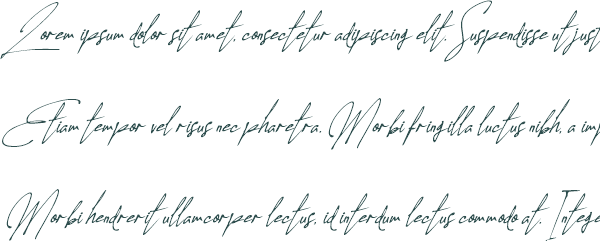 Lorem ipsum dolor sit amet, consectetur adipiscing elit. Suspendisse ut just
Etiam tempor vel risus nec pharetra. Morbi fringilla luctus nibh, a imp
Morbi hendrerit ullamcorper lectus, id interdum lectus commodo at. Intege